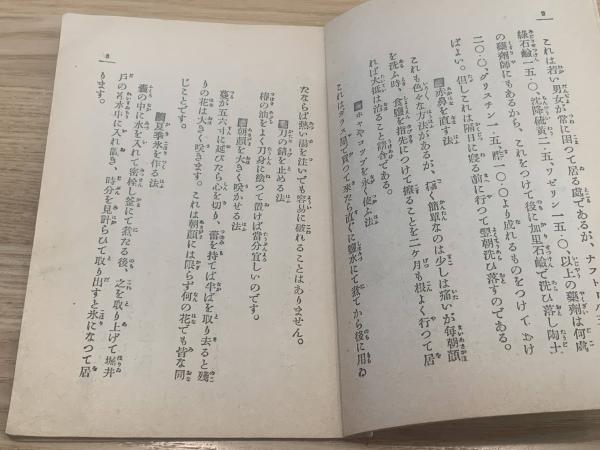 これは若い男女が常に困つて居る處であるが、ナフト
綠石鹼一五・〇、沈降硫黃二五、ワゼリン一五・〇、以上の藥劑は何處
の藥劑師にもあるから、これをつけて後に加里石鹼で洗ひ落し陶土
二〇・〇、グリスチン一・五、酢一〇・〇より成れるものをつけて
ばよい。但しこれは隔日に寢る前に行つて翌朝洗ひ落すのである。
赤鼻を直す法
これも色々な方法があるが、極く簡單なのは少しは痛いが每朝顏
を洗ふ時、食鹽を指先につけて擦ることを二ケ月も根よく行つて居
れば大抵は治ること請合である。
ホヤやコップを永く使ふ法
これはガラス屋で買つて來たら直ぐに鹽水にて煮てから後に用ゐ
9
たならば熱い湯を注いでも容易に破れることはありません。
刀の錆を止める法
椿の油をよく刀身に塗つて置けば當分宜しいのです。
朝顏を大きく咲かせる法
蔓が五六寸に延びたら心を切り、蕾を持てば半ばを取り去ると殘
りの花は大きく咲きます。これは朝顏には限らず何の花でも皆な同
じことです。
夏季氷を作る法
壜の中に水を入れて密栓し釜にて煮たる後、之を取り上げて堀井
戶の冷水中に入れ置き、時分を見計らひて取り出すと氷になつて居
ります。
8